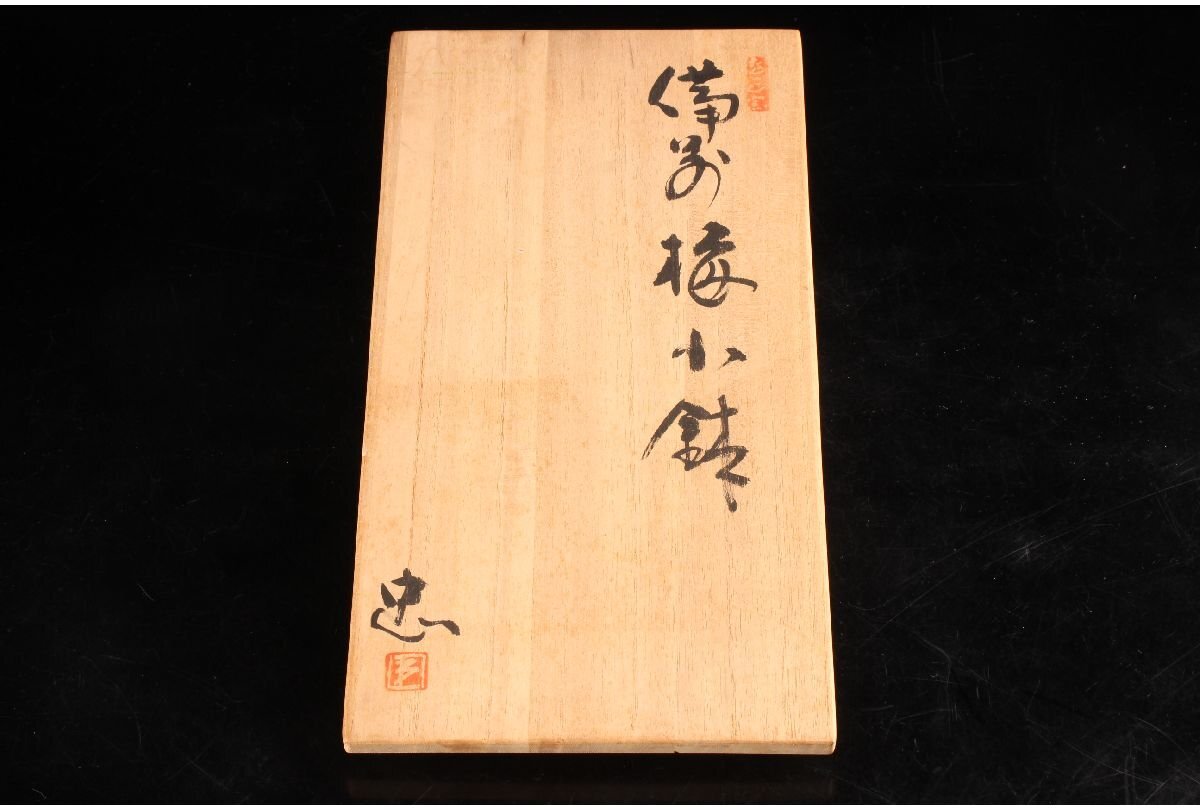 備前梅小鉢
忠